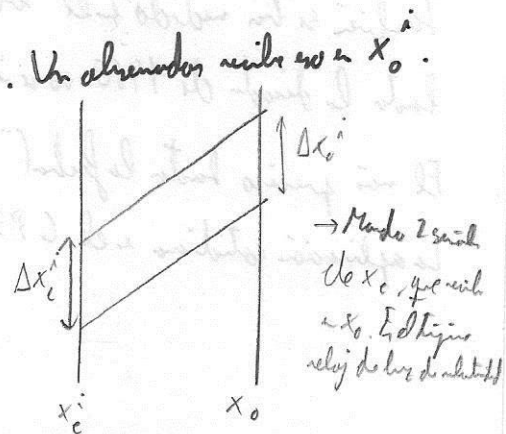 . Un observador recibe eso en x_o^i.
Δx_o^i
→ Mando 2 señales
Δx_e^i
de x_e, que recibe
en x_o. Es el típico
reloj de luz de relatividad
x_e^i
x_o